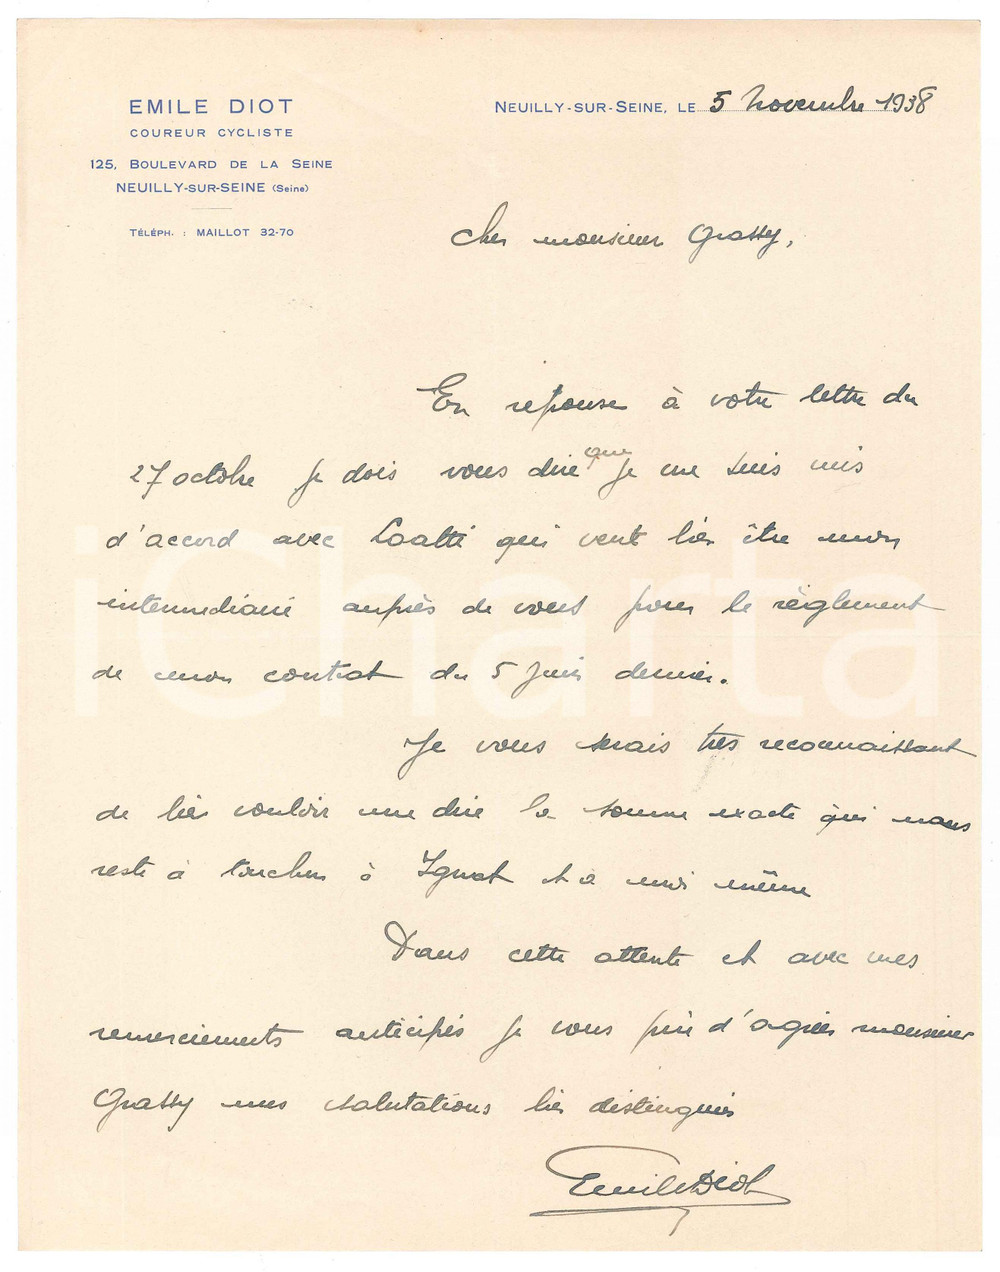 EMILE DIOT
COUREUR CYCLISTE
125, BOULEVARD DE LA SEINE
NEUILLY-SUR-SEINE (Seine)
TÉLÉPH. : MAILLOT 32-70
NEUILLY-SUR-SEINE, LE 5 Novembre 1938
Cher monsieur Grassy,
En reponse à votre lettre du
27 octobre je dois vous dire que je me suis mis
d'accord avec qui veut bien être mon
intermediaire auprès de vous pour le règlement
de mon contrat du 5 juin dernier.
Je vous serais très reconnaissant
de bien vouloir me dire la somme exacte qui nous
reste à toucher à Ignat et a moi même
Dans cette attente et avec mes
remerciements anticipés je vous prie d'agréer monsieur
Grassy mes salutations bien distinguées
Emile Diot
iCharta